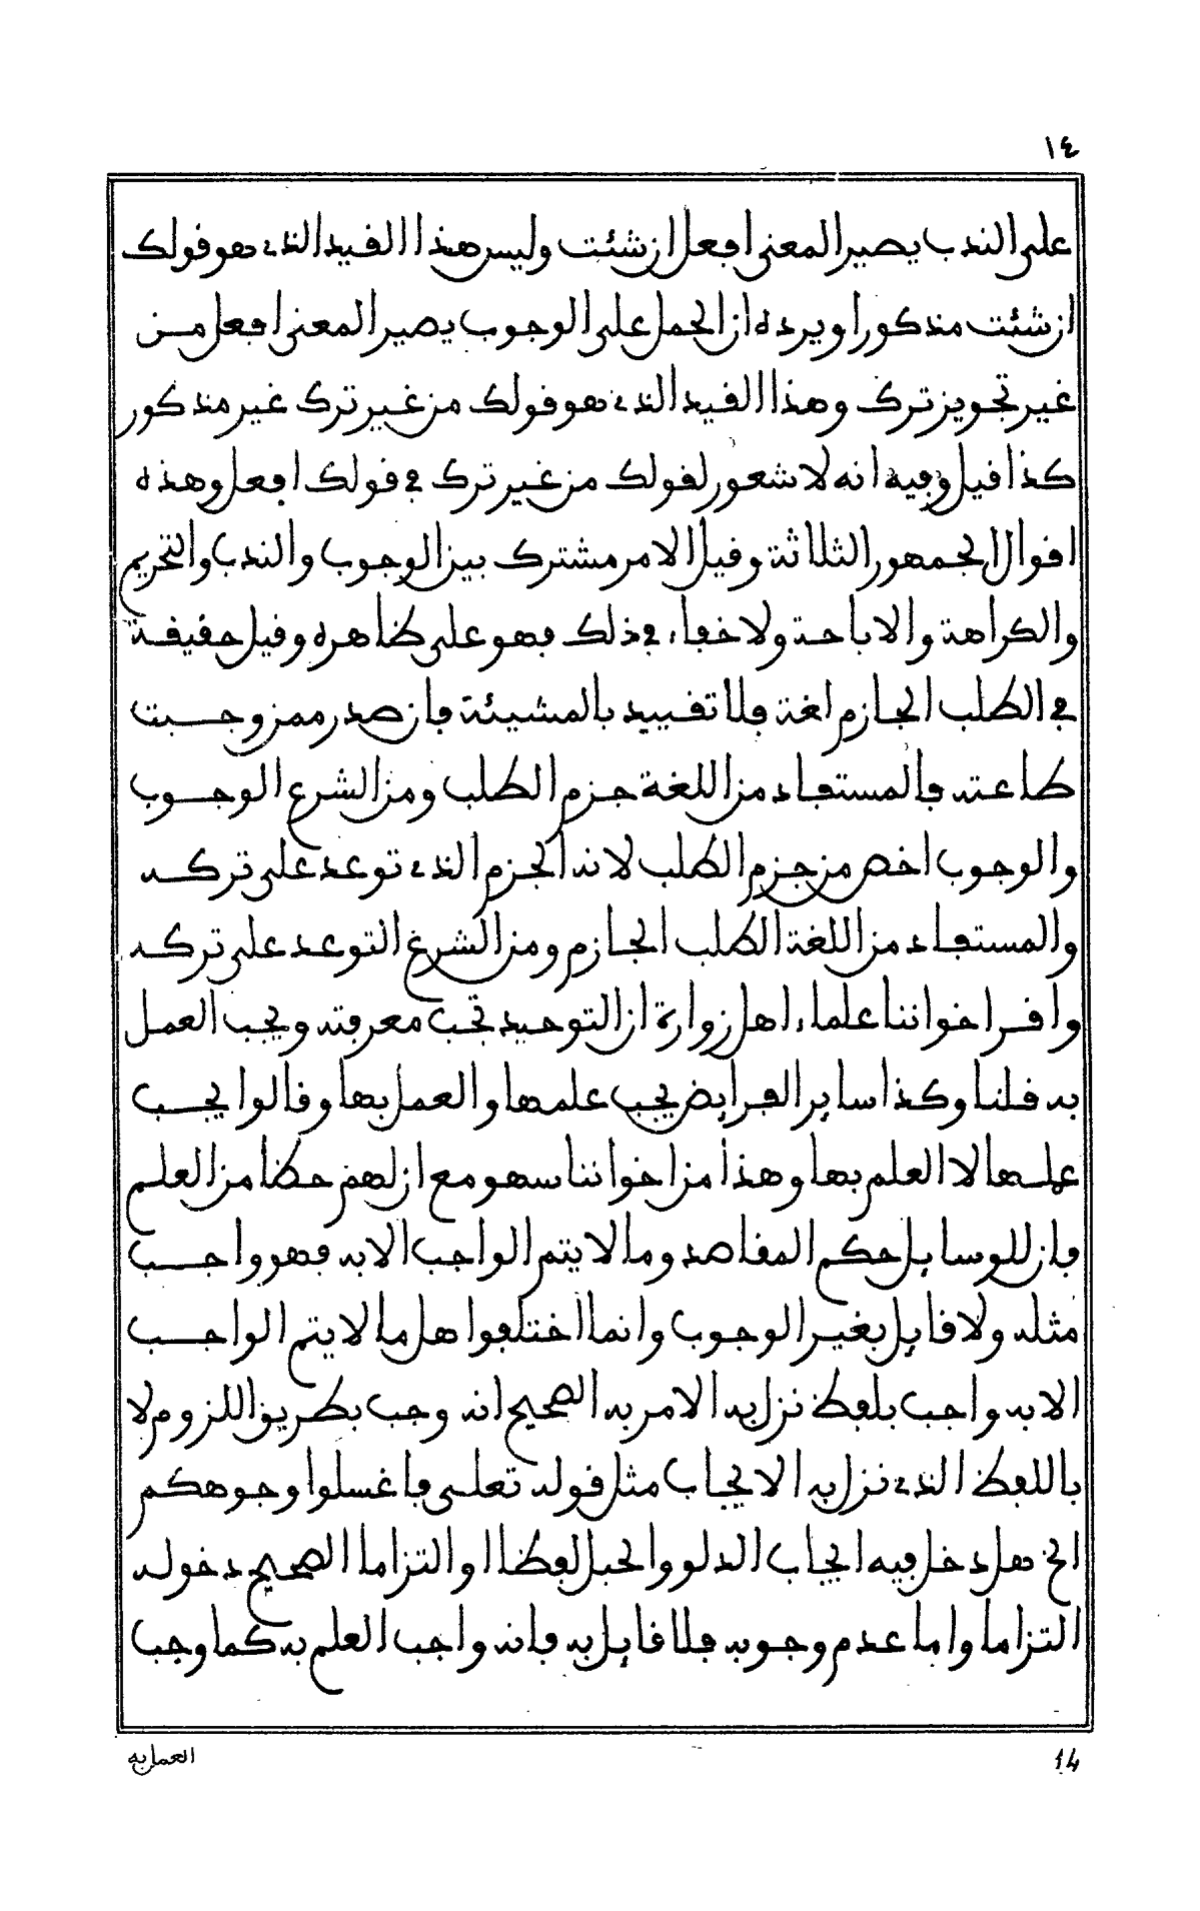 ١٤
على الندب يصير المعنى افعل ان شئت وليس هذا القيد الذي هو قولك
ان شئت مذكورا ويرده ان الحمل على الوجوب يصير المعنى افعل من
غير تجويز ترك وهذا القيد الذي هو قولك من غير ترك غير مذكور
كذا قيل وفيه انه لا شعور لقولك من غير ترك في قولك افعل وهذه
اقوال الجمهور الثلاثة وقيل الامر مشترك بين الوجوب والندب والتحريم
والكراهة والاباحة ولا خفاء في ذلك فهو على ظاهره وقيل حقيقة
في الطلب الجازم لغة فلا تقييد بالمشيئة فان صدر ممن وجبت
طاعته فالمستفاد من اللغة جزم الطلب ومن الشرع الوجوب
والوجوب اخص من جزم الطلب لانه الجزم الذي توعد على تركه
والمستفاد من اللغة الطلب الجازم ومن الشرع التوعد على تركه
وافر اخواننا علماء اهل زوارة ان التوحيد تجب معرفته ويجب العمل
به قلنا وكذا ساير الفرايض يجب علمها والعمل بها وقالوا يجب
علمها لا العلم بها وهذا من اخواننا سهو مع ان لهم حظا من العلم
فان للوسايل حكم المقاصد وما لا يتم الواجب الا به فهو واجب
مثله ولا قايل بغير الوجوب وانما اختلفوا هل ما لا يتم الواجب
الا به واجب بلفظ نزل به الامر به الصحيح انه وجب بطريق اللزوم لا
باللفظ الذي نزل به الايجاب مثل قوله تعلى فاغسلوا وجوهكم
الخ هل دخل فيه ايجاب الدلو والحبل لفظا او التزاما الصحيح دخوله
التزاما واما عدم وجوبه فلا قايل به فانه واجب العلم به كما وجب
العمل به
14